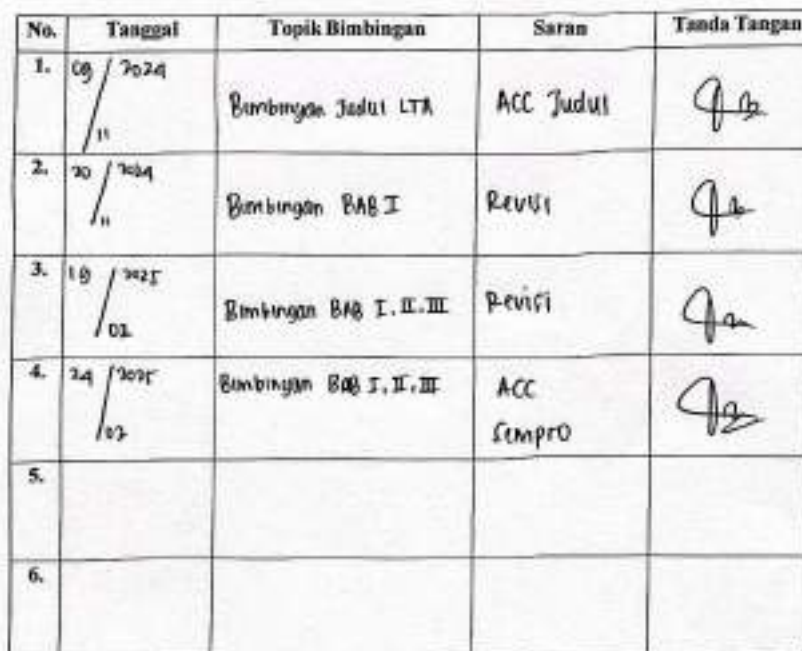 No. Tanggal Topik Bimbingan Saran Tanda Tangan
1. 09 / 2024
11
Bimbingan Judul LTA ACC Judul
2. 20 / 2024
11
Bimbingan BAB I Revisi
3. 19 / 2025
02
Bimbingan BAB I, II, III Revisi
4. 24 / 2025
02
Bimbingan BAB I, II, III ACC
Sempro
5.
6.